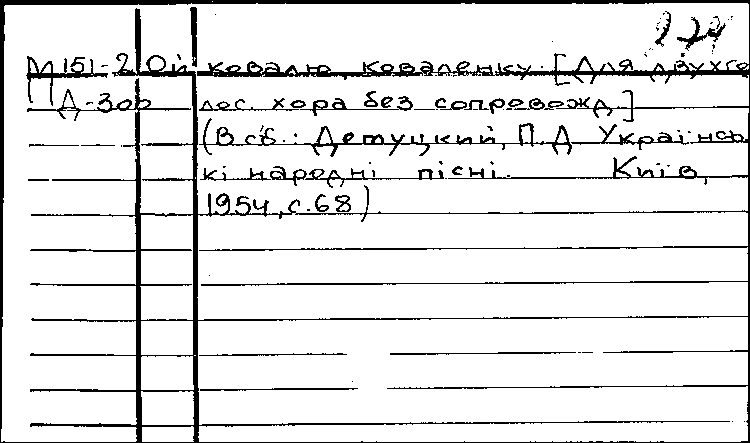 274
М151-2 Ой ковалю, коваленку. [Для двухго
Д-30р лос. хора без сопревожд.]
(В сб.: Демуцкий, П.Д Українсь
кі народні пісні. Київ,
1954, с.68).